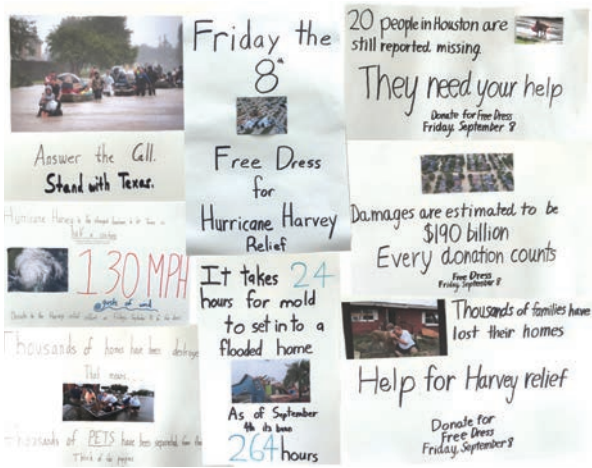 Answer the Call.
Stand with Texas.
Hurricane Harvey is the strongest hurricane to hit Texas in
half a century
130 MPH
gusts of wind
Thousands of homes have been destroyed
That means...
Thousands of PETS have been separated from
Think of the puppies
Friday the
8th
Free Dress
for
Hurricane Harvey
Relief
It takes 24
hours for mold
to set in to a
flooded home
As of September
4th its been
264 hours
20 people in Houston are
still reported missing
They need your help
Donate for Free Dress
Friday, September 8
Damages are estimated to be
$190 billion
Every donation counts
Free Dress
Friday, September 8
Thousands of families have
lost their homes
Help for Harvey relief
Donate for
Free Dress
Friday, September 8